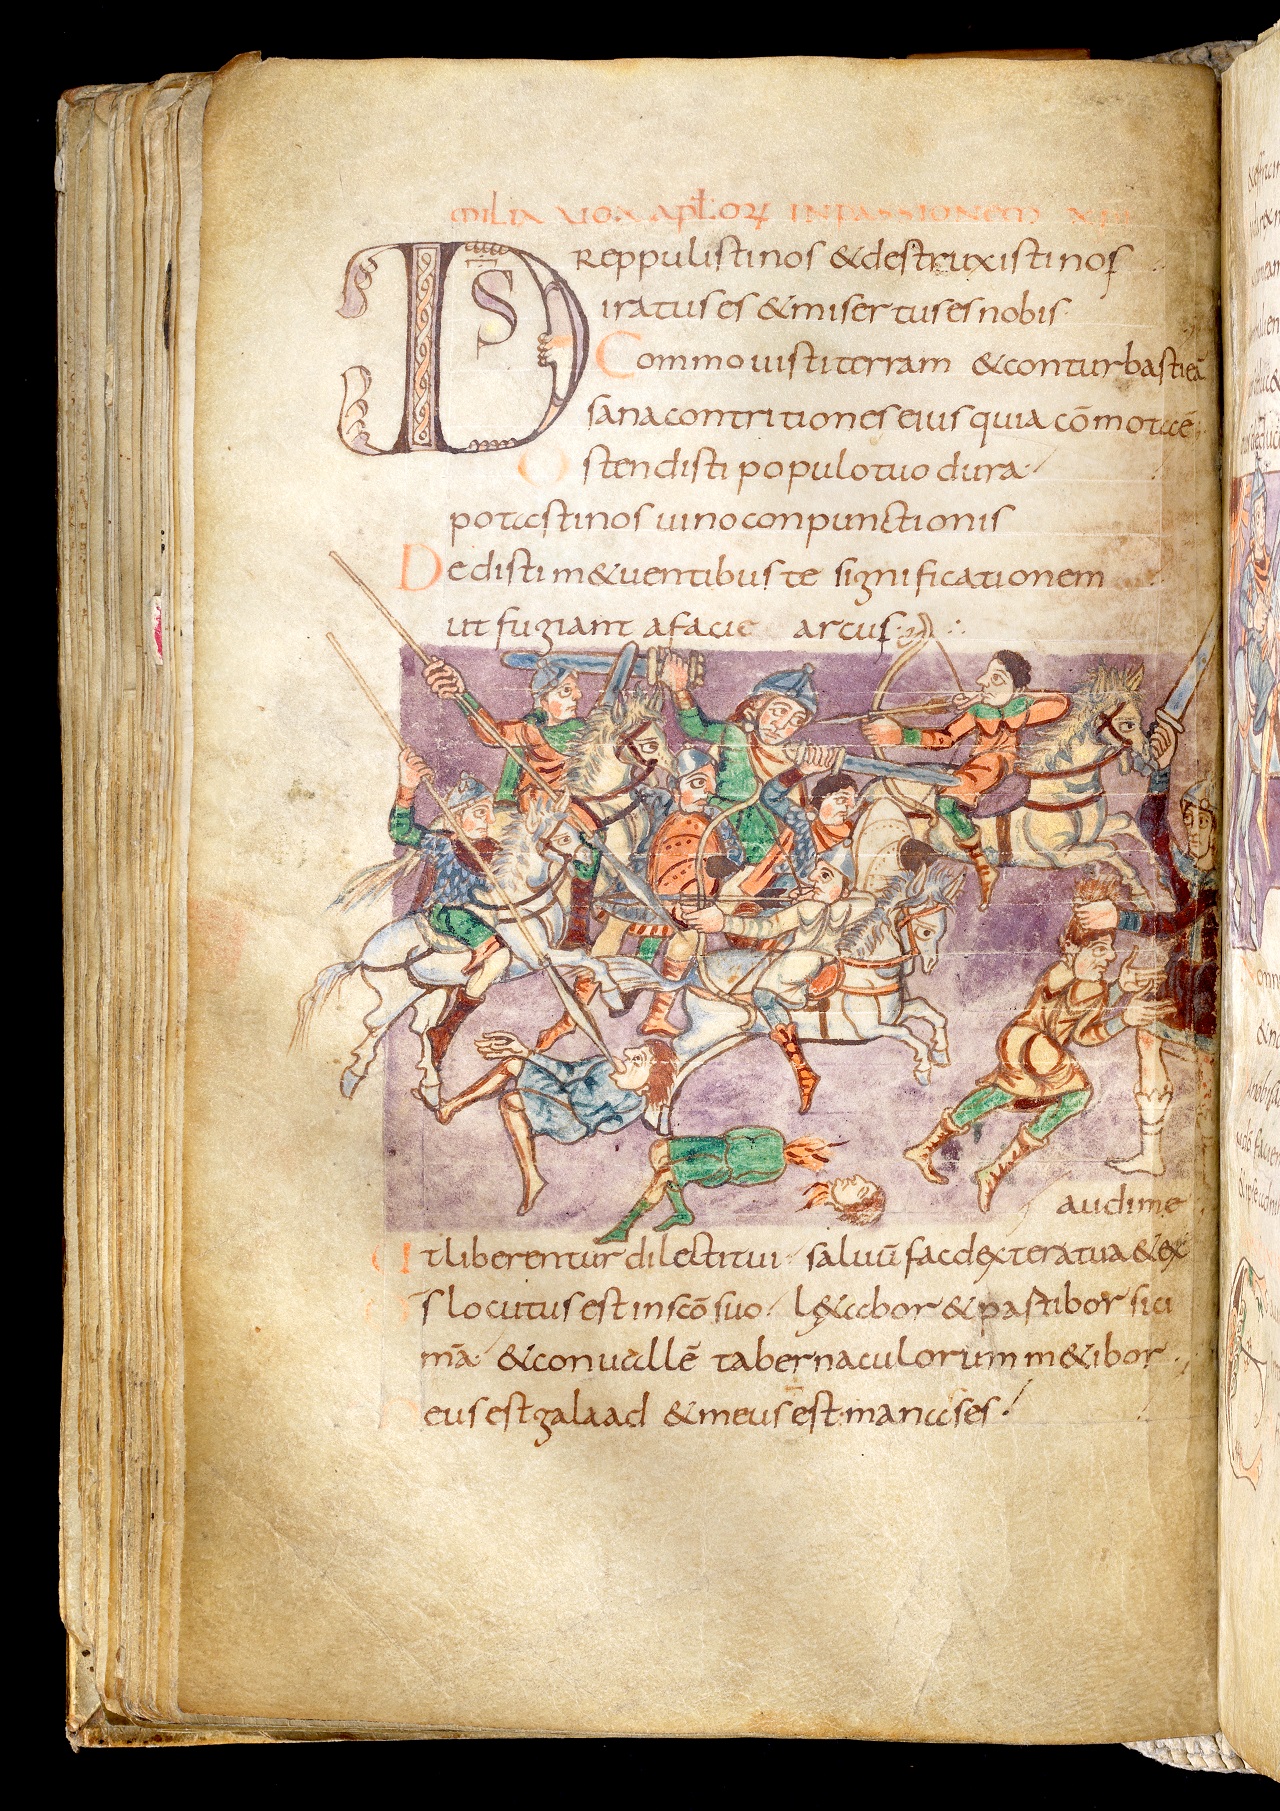 milia uox aptłoꝝ in passionem xpi
DS reppulisti nos & destruxisti nos
iratus es & misertus es nobis
Commouisti terram & conturbasti eā
sana contritiones eius quia cōmota ē
Ostendisti populo tuo dura
potasti nos uino conpunctionis
Dedisti m&uentibus te significationem
ut fugiant a facie arcus
audi me
Ut liberentur dilecti tui saluū fac dextera tua & ex
Ds locutus est in scō suo l&abor & partibor sici
mā & conuallē tabernaculorum m&ibor
Meus est galaad & meus est manases